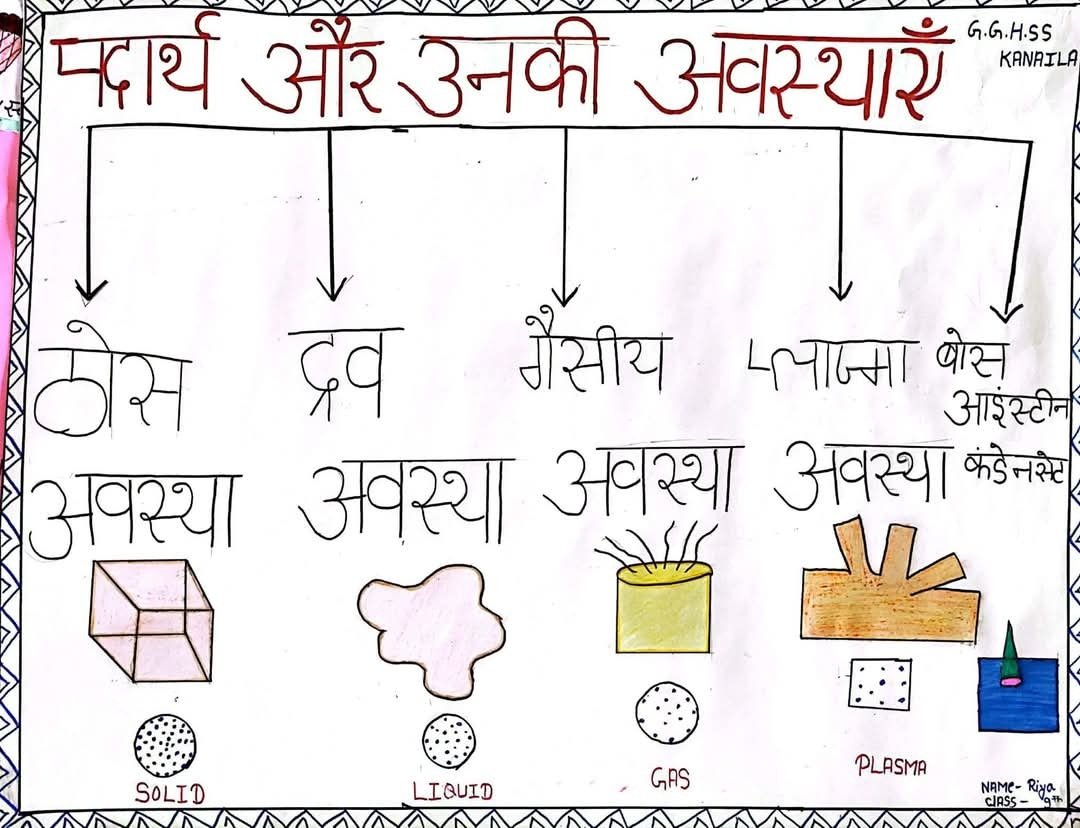 पदार्थ और उनकी अवस्थाएँ
G.G.H.SS
KANAILA
ठोस
अवस्था
द्रव
अवस्था
गैसीय
अवस्था
प्लाज्मा
अवस्था
बोस
आइंस्टीन
कंडेनसेट
SOLID
LIQUID
GAS
PLASMA
NAME- Riya
CLASS- 9th